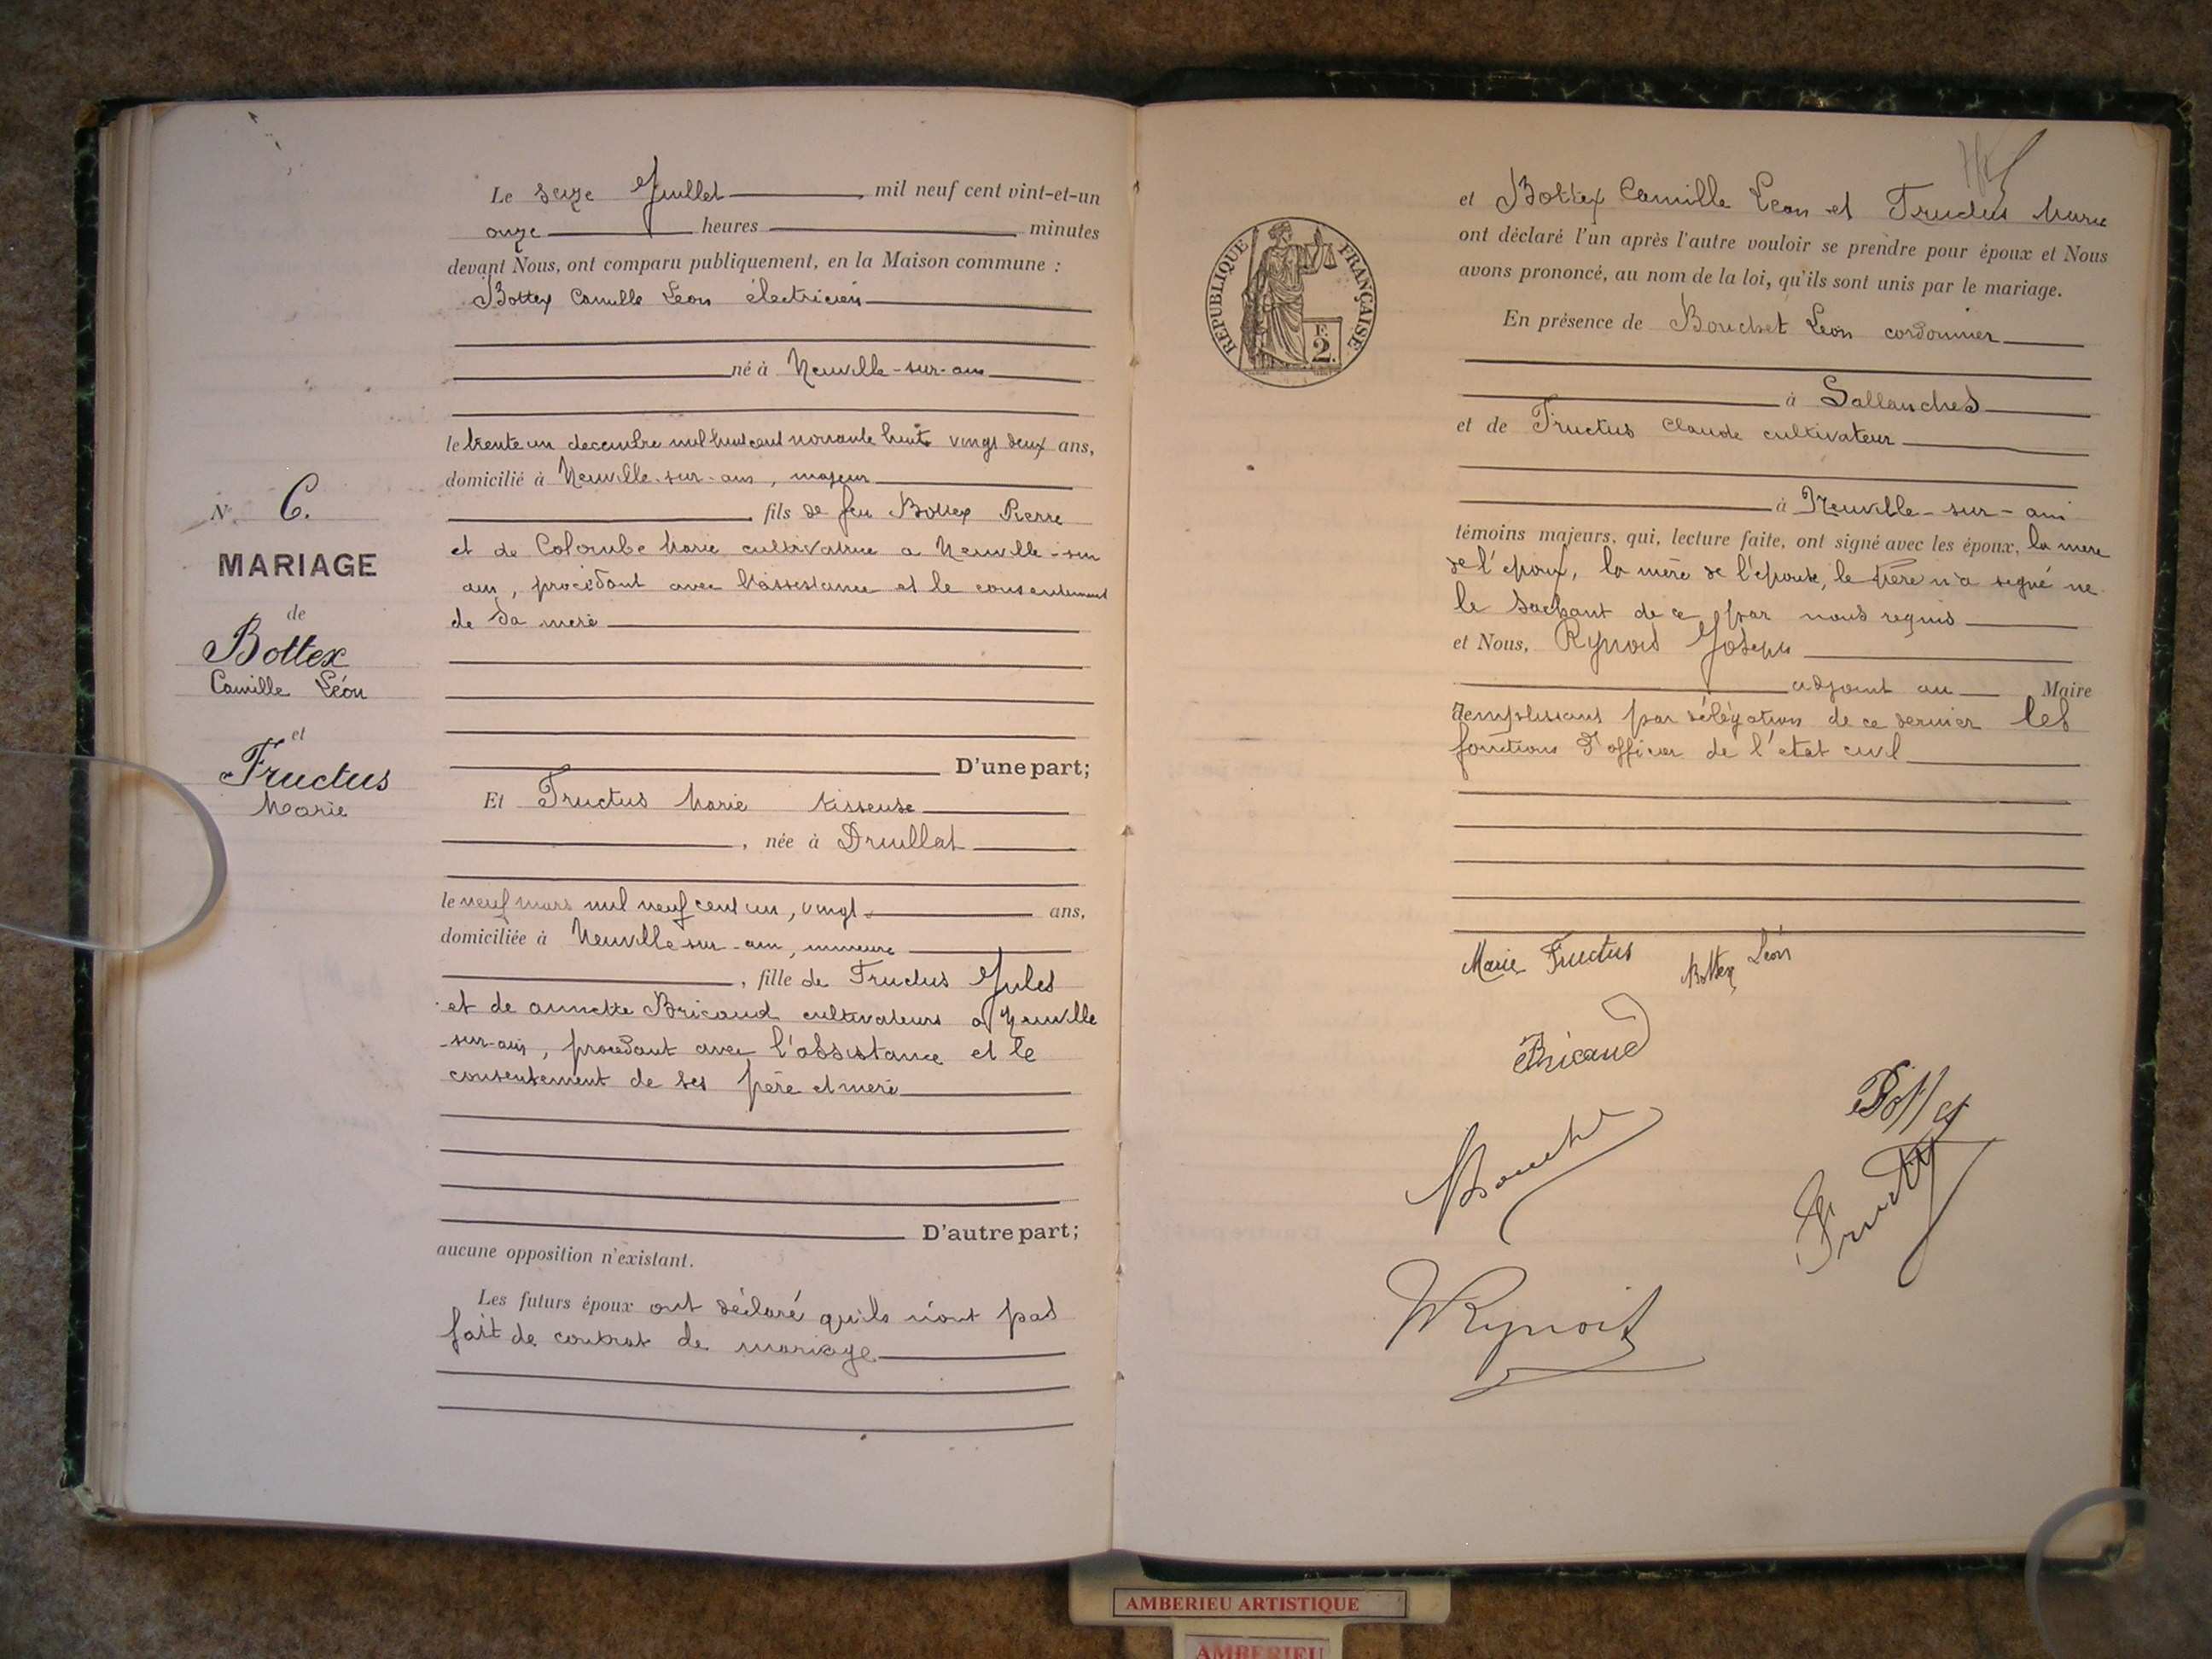 Nº 6.
MARIAGE
de
Bottex
Camille Léon
et
Fructus
Marie
Le seize Juillet mil neuf cent vint-et-un
onze heures minutes
devant Nous, ont comparu publiquement, en la Maison commune :
Bottex Camille Leon électricien
né à Neuville-sur-ain
le trente un decembre mil huit cent nonante huit vingt deux ans,
domicilié à Neuville-sur-ain, majeur
fils de feu Bottex Pierre
et de Colombe Marie cultivatrice a Neuville-sur
ain, procédant avec l'assistance et le consentement
de sa mere
D'une part;
Et Fructus Marie tisseuse
, née à Druillat
le neuf mars mil neuf cent un, vingt ans,
domiciliée à Neuville sur-ain, mineure
, fille de Fructus Jules
et de annette Bricaud cultivateurs a Neuville
-sur-ain, procedant avec l'assistance et le
consentement de ses père et mere
D'autre part;
aucune opposition n'existant.
Les futurs époux ont déclaré qu'ils n'ont pas
fait de contrat de mariage
REPUBLIQUE FRANÇAISE
F.
2.
et Bottex Camille Leon et Fructus Marie
ont déclaré l'un après l'autre vouloir se prendre pour époux et Nous
avons prononcé, au nom de la loi, qu'ils sont unis par le mariage.
En présence de Bouchet Leon cordonnier
à Sallanches
et de Fructus Claude cultivateur
à Neuville-sur-ain
témoins majeurs, qui, lecture faite, ont signé avec les époux, la mere
de l'époux, la mère de l'épouse, le père n'a signé ne
le sachant de ce par nous requis
et Nous, Joseph
adjoint au Maire
remplissant par délégation de ce dernier les
fonctions d'officier de l'etat civil
Marie Fructus
Bottex Léon
Bricaud
AMBERIEU ARTISTIQUE
AMBERIEU